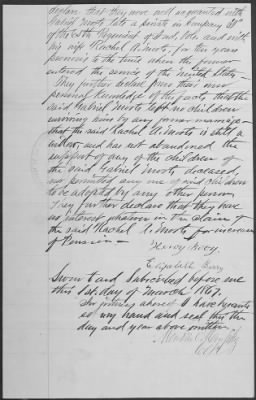 declare that they were well acquainted with
Gabriel Moots late a private in Company "D"
of the 25th Regiment of Ind. Vols and with
his wife Rachel A. Moots, for ten years
previous to the time when the former
entered the service of the United States.
They further declare from their own
personal knowledge of the facts, that the
said Gabriel Moots left no children
surviving him by any former marriage
that the said Rachel A. Moots is still a
widow, and has not abandoned the
support of any of the children of
the said Gabriel Moots deceased,
nor permitted any one of said children
to be adopted by any other person
They further declare that they have
no interest whatever in the claim of
the said Rachel A. Moots for increase
of Pension —
Sworn to and Subscribed before me
this 1st. day of March 1867.
In testimony whereof I have hereunto
set my hand and seal this the
day and year above written